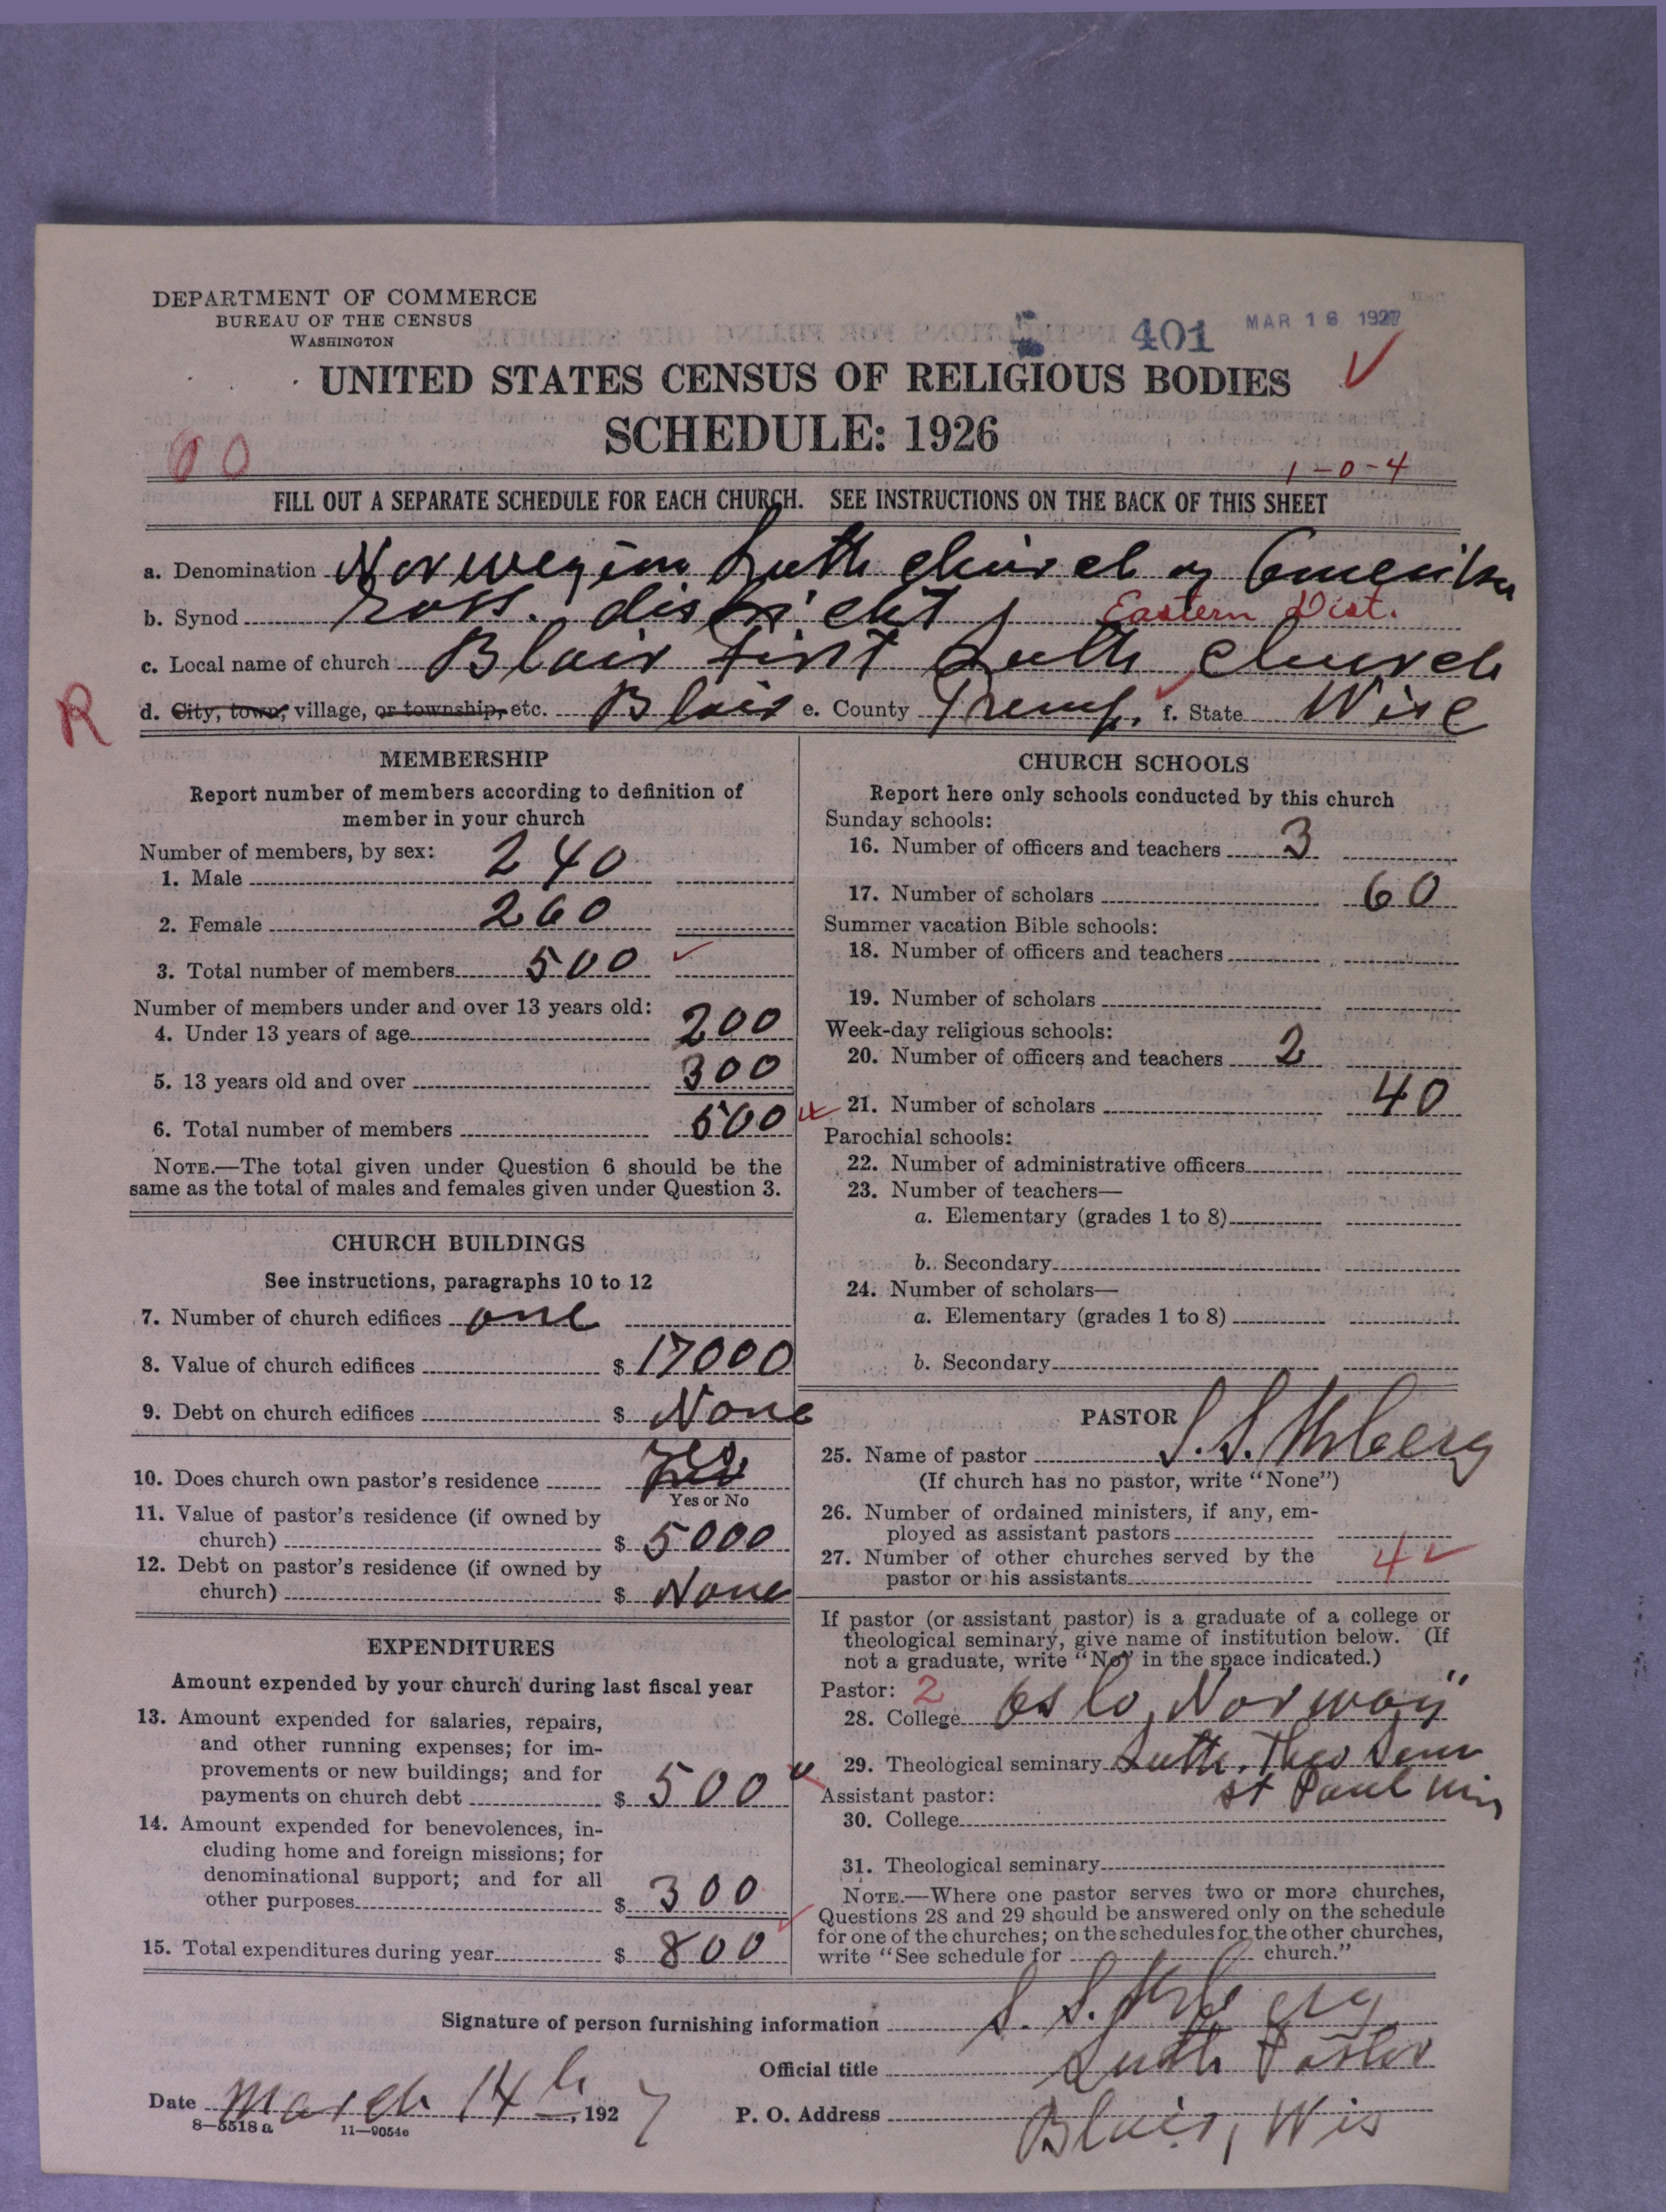 DEPARTMENT OF COMMERCE
BUREAU OF THE CENSUS
WASHINGTON
401
MAR 16 1927
UNITED STATES CENSUS OF RELIGIOUS BODIES
SCHEDULE: 1926
00
1-0-4
FILL OUT A SEPARATE SCHEDULE FOR EACH CHURCH. SEE INSTRUCTIONS ON THE BACK OF THIS SHEET
a. Denomination Norwegian Luth church of
b. Synod district Eastern Dist.
c. Local name of church Blair First Luth church
R
d. City, town, village, or township, etc. Blair e. County Tremp. f. State Wise
MEMBERSHIP
Report number of members according to definition of
member in your church
Number of members, by sex:
1. Male 240
2. Female 260
3. Total number of members 500
Number of members under and over 13 years old:
4. Under 13 years of age 200
5. 13 years old and over 300
6. Total number of members 500
NOTE.—The total given under Question 6 should be the
same as the total of males and females given under Question 3.
CHURCH BUILDINGS
See instructions, paragraphs 10 to 12
7. Number of church edifices one
8. Value of church edifices $ 17000
9. Debt on church edifices $ None
10. Does church own pastor's residence Yes
Yes or No
11. Value of pastor's residence (if owned by
church) $ 5000
12. Debt on pastor's residence (if owned by
church) $ None
EXPENDITURES
Amount expended by your church during last fiscal year
13. Amount expended for salaries, repairs,
and other running expenses; for im-
provements or new buildings; and for
payments on church debt $ 500
14. Amount expended for benevolences, in-
cluding home and foreign missions; for
denominational support; and for all
other purposes $ 300
15. Total expenditures during year $ 800
CHURCH SCHOOLS
Report here only schools conducted by this church
Sunday schools:
16. Number of officers and teachers 3
17. Number of scholars 60
Summer vacation Bible schools:
18. Number of officers and teachers
19. Number of scholars
Week-day religious schools:
20. Number of officers and teachers 2
21. Number of scholars 40
Parochial schools:
22. Number of administrative officers
23. Number of teachers—
a. Elementary (grades 1 to 8)
b. Secondary
24. Number of scholars—
a. Elementary (grades 1 to 8)
b. Secondary
PASTOR
25. Name of pastor S. S.
(If church has no pastor, write "None")
26. Number of ordained ministers, if any, em-
ployed as assistant pastors
27. Number of other churches served by the
pastor or his assistants 4
If pastor (or assistant pastor) is a graduate of a college or
theological seminary, give name of institution below. (If
not a graduate, write "No" in the space indicated.)
Pastor: 2
28. College Oslo, Norway"
29. Theological seminary Luth. Theo Sem
St Paul Min
Assistant pastor:
30. College
31. Theological seminary
NOTE.—Where one pastor serves two or more churches,
Questions 28 and 29 should be answered only on the schedule
for one of the churches; on the schedules for the other churches,
write "See schedule for church."
Signature of person furnishing information S. S.
Official title Luth Pastor
Date March 14th, 1927
P. O. Address Blair, Wis
8—5518 a
11—9054e